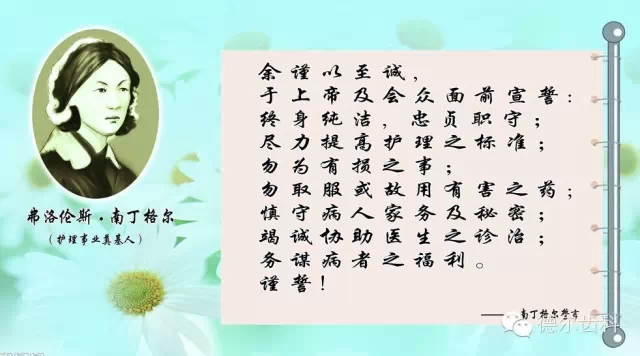 弗洛伦斯·南丁格尔
(护理事业奠基人)
余谨以至诚，
于上帝及会众面前宣誓：
终身纯洁，忠贞职守；
尽力提高护理之标准；
勿为有损之事；
勿取服或故用有害之药；
慎守病人家务及秘密；
竭诚协助医生之诊治；
务谋病者之福利。
谨誓！
——南丁格尔誓言
德尔齿科